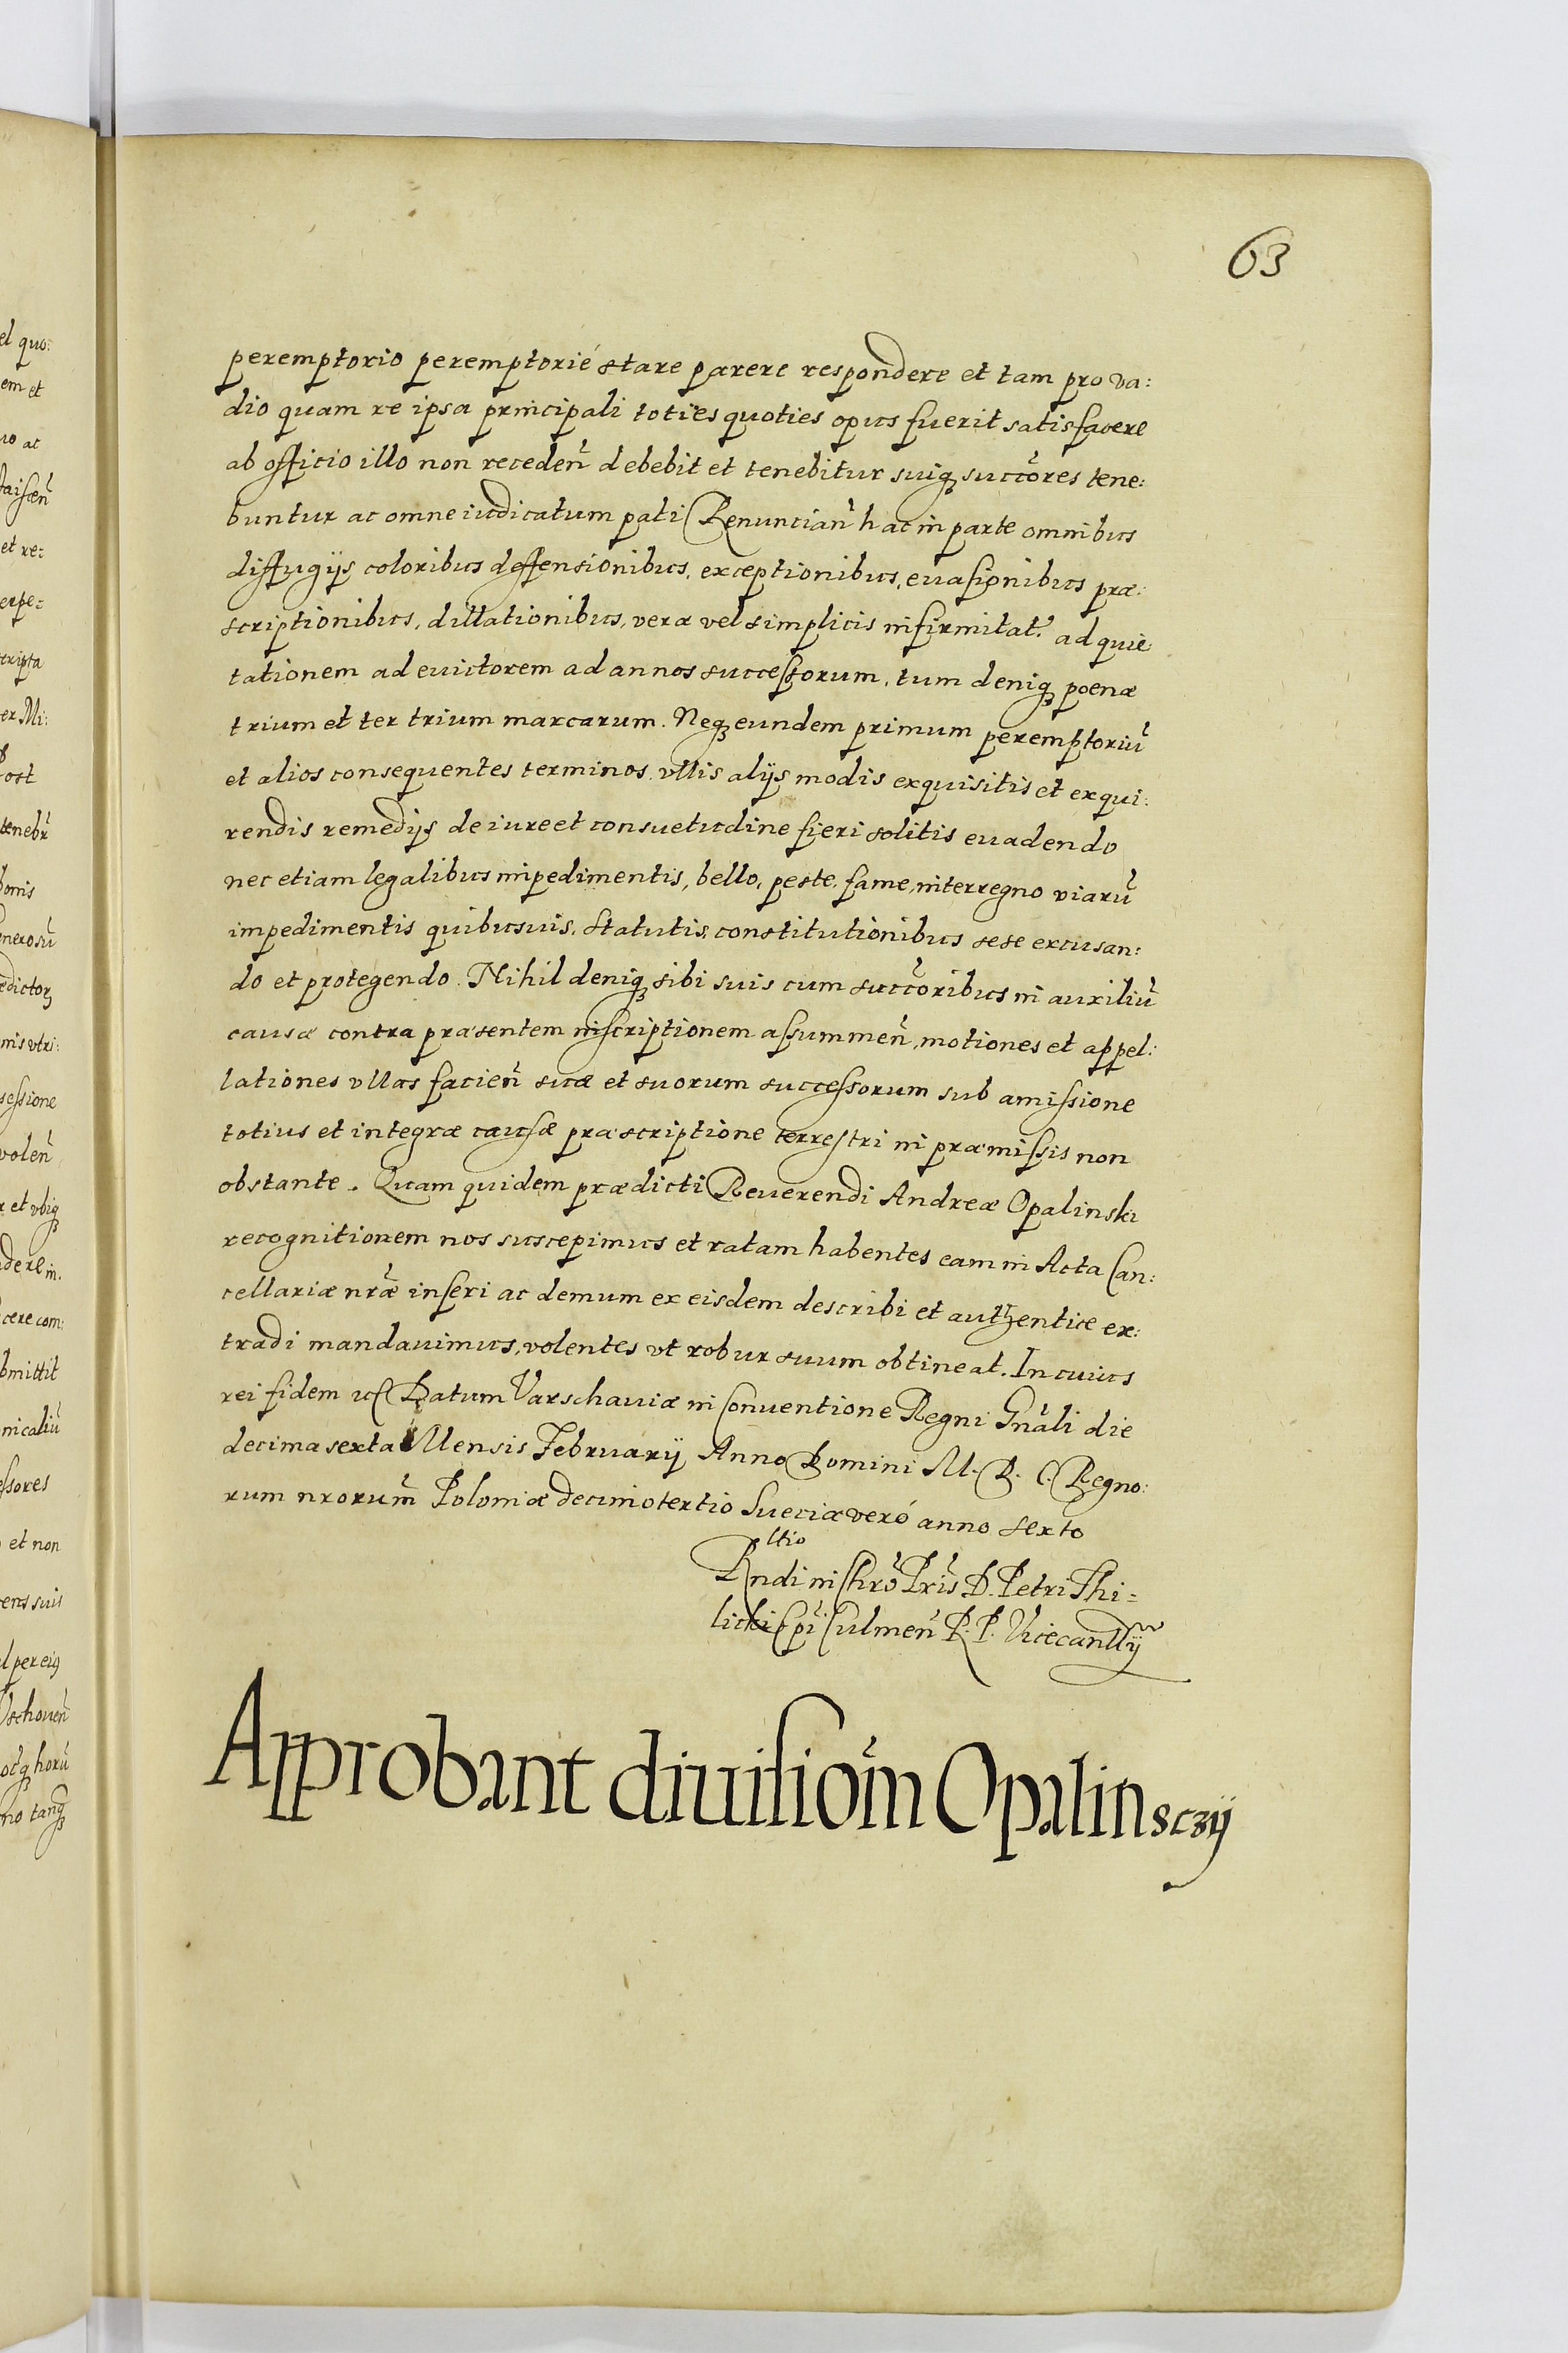 63
peremptorio peremptorié stare parere respondere et tam pro va:
dio quam re ipsa principali toties quoties opus fuerit satisfacere
ab officio illo non receden̄ debebit et tenebitur suiqꝫ succōres tene:
buntur ac omne iudicatum pati Renuncian̄ hac in parte omnibus
diffugijs coloribus deffensionibus, exceptionibus, euasionibus præ:
scriptionibus, dillationibus, veræ vel simplicis infirmitat: ad quie
tationem ad euictorem ad annos successorum, tum deniqꝫ poenæ
trium et ter trium marcarum. Neqꝫ eundem primum peremptoriū
et alios consequentes terminos, vllis alijs modis exquisitis et exqui:
rendis remedijs de iure et consuetudine fieri solitis euadendo
nec etiam legalibus impedimentis, bello, peste, fame, interregno viarū
impedimentis quibusuis, statutis, constitutionibus sese excusan:
do et protegendo. Nihil deniqꝫ sibi suis cum succōribus in auxiliū
causæ contra præsentem inscriptionem assummen̄, motiones et appel:
lationes vllas facien̄ suæ et suorum successorum sub amissione
totius et integræ causæ præscriptione terrestri in præmissis non
obstante. Quam quidem prædicti Reuerendi Andreæ Opalinski
recognitionem nos suscepimus et ratam habentes eam in Acta Can:
cellariæ nr̄æ inseri ac demum ex eisdem describi et authentice ex:
tradi mandauimus, volentes vt robur suum obtineat. In cuius
rei fidem Datum Varschauiæ in Conuentione Regni Gn̄ali die
decima sexta Mensis Februarij Anno Domini M. D. C. Regno:
rum nrorum̄ Poloniæ decimotertio Sueciæ veró anno sexto
Rltio
Rndi in Chrō Pris̄ D. Petri Thi=
licki Ep̄i Culmen̄ R. P. Vicecanllrij
Approbant diuisiōm Opalinsczij
el quo:
em et
uo ac
et re:
erpe=
scripta
er Mi:
ost
tenebr̄
onis
enerosū
ædictorꝫ
nis vtri:
sessione
volen̄
r et vbiqꝫ
dere in.
cere com:
bmittit
nicaliū
essores
et non
ens suis
l per eiꝰ
schouen̄
otqꝫ horū
no tanqꝫ